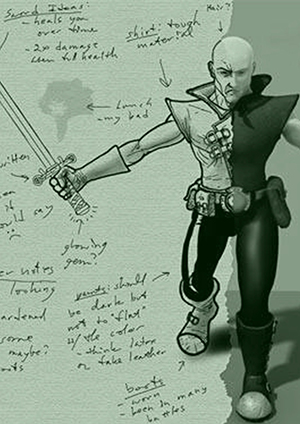 Sword Ideas:
- heals you
over time
- 2x damage
when full health
Hair?
shirt: tough
material
Lunch
- my bad
written
it
would say
glowing
gem?
er notes
looking
ardened
some
maybe?
pants: should
be dark but
not to "flat"
w/ the color
- think latex
or fake leather
?
boots
- worn
- been in many
battles